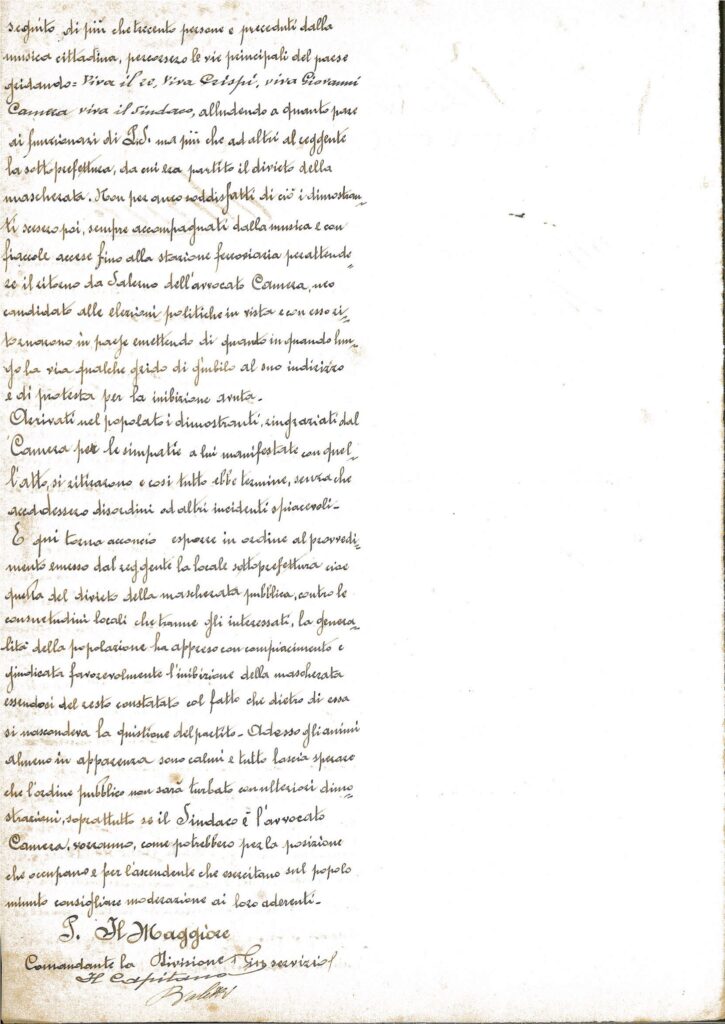 seguito, di più che trecento persone e preceduti dalla
musica cittadina, percorsero le vie principali del paese
gridando = Viva il re, Viva Crispi, viva Giovanni
Camera viva il Sindaco, alludendo a quanto pare
ai funzionari di P.S. ma più che ad altri al reggente
la sottoprefettura, da cui era partito il divieto della
mascherata. Non per anco soddisfatti di ciò i dimostran-
ti scesero poi, sempre accompagnati dalla musica e con
fiaccole accese fino alla stazione ferroviaria per attende-
re il ritorno da Salerno dell'avvocato Camera, neo
candidato alle elezioni politiche in vista e con esso ri-
tornarono in paese emettendo di quanto in quando lun-
go la via qualche grido di giubilo al suo indirizzo
e di protesta per la inibizione avuta -
Arrivati nel popolato i dimostranti, ringraziati dal
Camera per le simpatie a lui manifestate con quel-
l'atto, si ritirarono e così tutto ebbe termine, senza che
accadessero disordini od altri incidenti spiacevoli -
E qui torna acconcio esporre in ordine al provvedi-
mento emesso dal reggente la locale sottoprefettura cioè
quella del divieto della mascherata pubblica, contro le
consuetudini locali che tranne gli interessati, la genera-
lità della popolazione ha appreso con compiacimento e
giudicata favorevolmente l'inibizione della mascherata
essendosi del resto constatato col fatto che dietro di essa
si nascondeva la quistione del partito - Adesso gli animi
almeno in apparenza sono calmi e tutto lascia sperare
che l'ordine pubblico non sarà turbato con ulteriori dimo-
strazioni, soprattutto se il Sindaco e l'avvocato
Camera, vorranno, come potrebbero per la posizione
che occupano e per l'ascendente che esercitano sul popolo
minuto consigliare moderazione ai loro aderenti -
P. Il Maggiore
Comandante la Divisione in servizio
Il Capitano